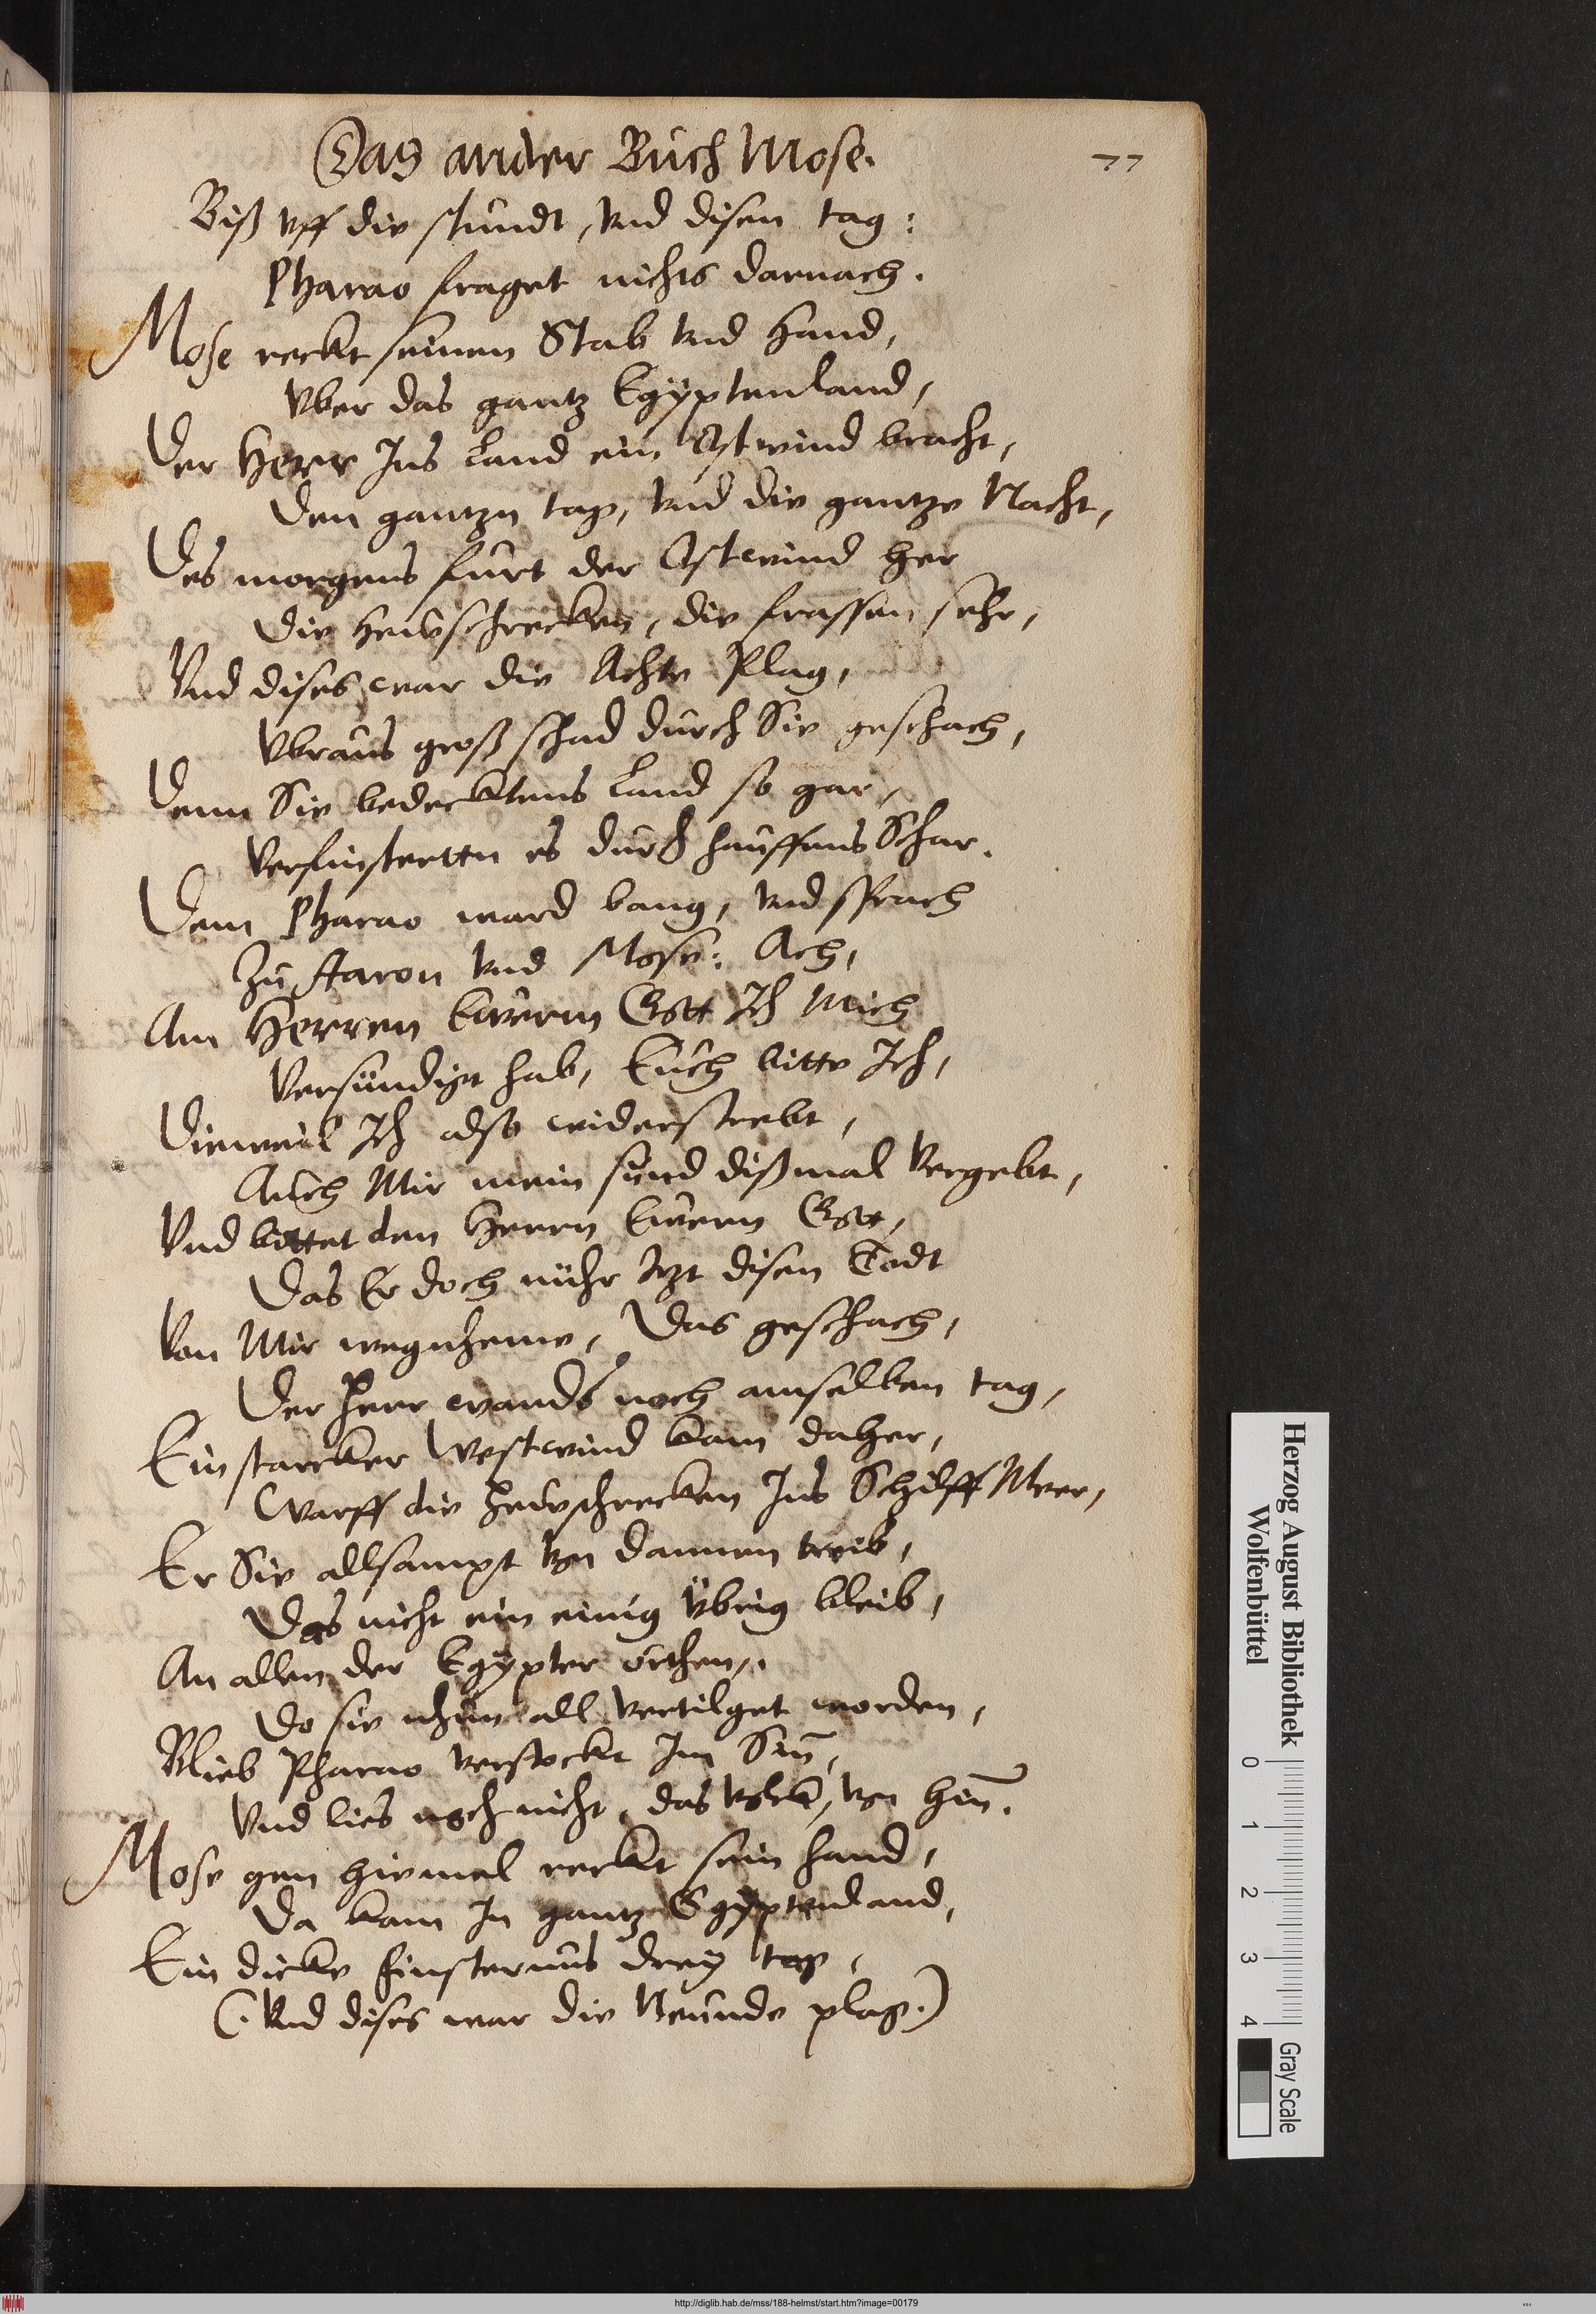 Das ander Buch Mose.
77
Biß vff die stundt, vnd disen tag:
Pharao fraget nichts darnach.
Mose reckt seinen Stab vnd Hand,
Vber das gantz Egÿptenland,
Der Herr Ins Land ein Ostwind bracht,
Den gantzn tag, vnd die gantze Nacht,
Des morgens furt der Ostwind her
Die Hewschrecken, die frassen sehr,
Vnd dises war die Achte Plag,
Vbraus groß schad durch Sie geschach,
Denn Sie bedecktens Land so gar,
Verfinstertten es durch hauffens Schar.
Dem Pharao ward bang, vnd sprach
Zu Aaron vnd Mose: Ach,
Am Herren Ewerm Gott Ich Mich
Versündigt hab, Euch bitte Ich,
Dieweil Ich also widerstrebt,
Auch Mir mein sünd dißmal vergebt,
Vnd bittet den Herrn Ewern Gott,
Das Er doch nuhr Itzt disen Todt
Von Mir wegnheme, Das geschach,
Der Herr wands noch amselben tag,
Ein starcker Westwind kam daher,
Warff die Hewschrecken Ins Schilff Meer,
Er Sie allsampt von dannen treib,
Das nicht ein einig Vbrig bleib,
An allen der Egÿpter örthen,.
Do sie nhun all vertilget worden,
Blieb Pharao verstockt Im Sin̄,
Vnd lies noch nicht, das Volck, von hin̄.
Mose gen Hiemel reckt sein Hand,
Da kam In gantz Egÿptenland,
Ein dicke finsternus dreÿ tag,
(. Vnd dises war die Neunde plag.)
Herzog August Bibliothek
Wolfenbüttel
0 1 2 3 4
Gray Scale
http://diglib.hab.de/mss/188-helmst/start.htm?image=00179